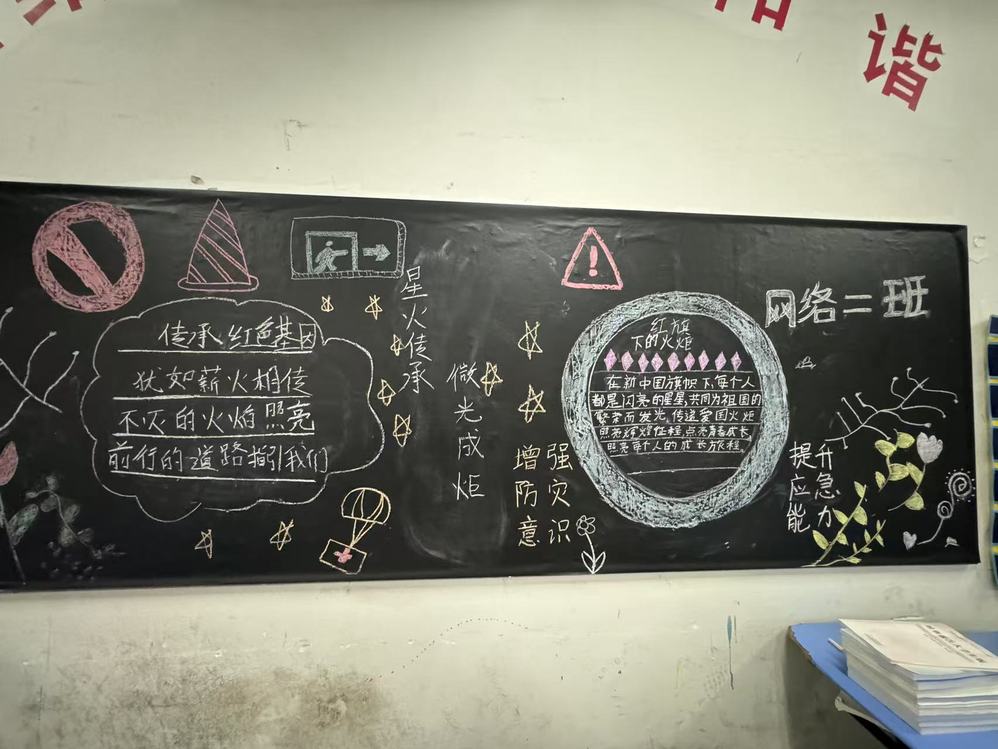 谐
传承红色基因
犹如薪火相传
不灭的火焰照亮
前行的道路指引我们
星火传承
微光成炬
增强
防灾
意识
红旗
下的火炬
在新中国旗帜下,每个人
都是闪亮的星星,共同为祖国的
繁荣而发光,传递爱国火炬
照亮辉煌征程,点亮青春成长
照亮每个人的成长旅程。
网络二班
提升
应急
能力